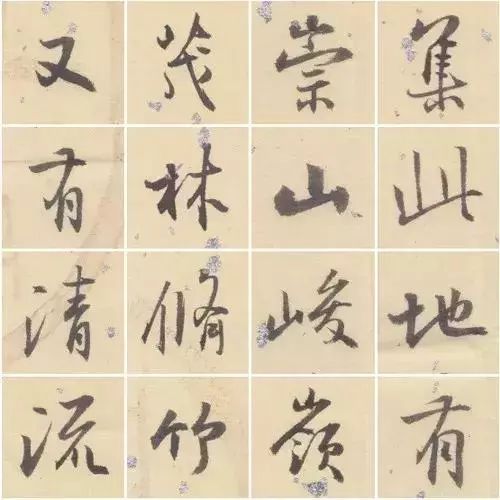 集此地有
崇山峻嶺
茂林脩竹
又有清流